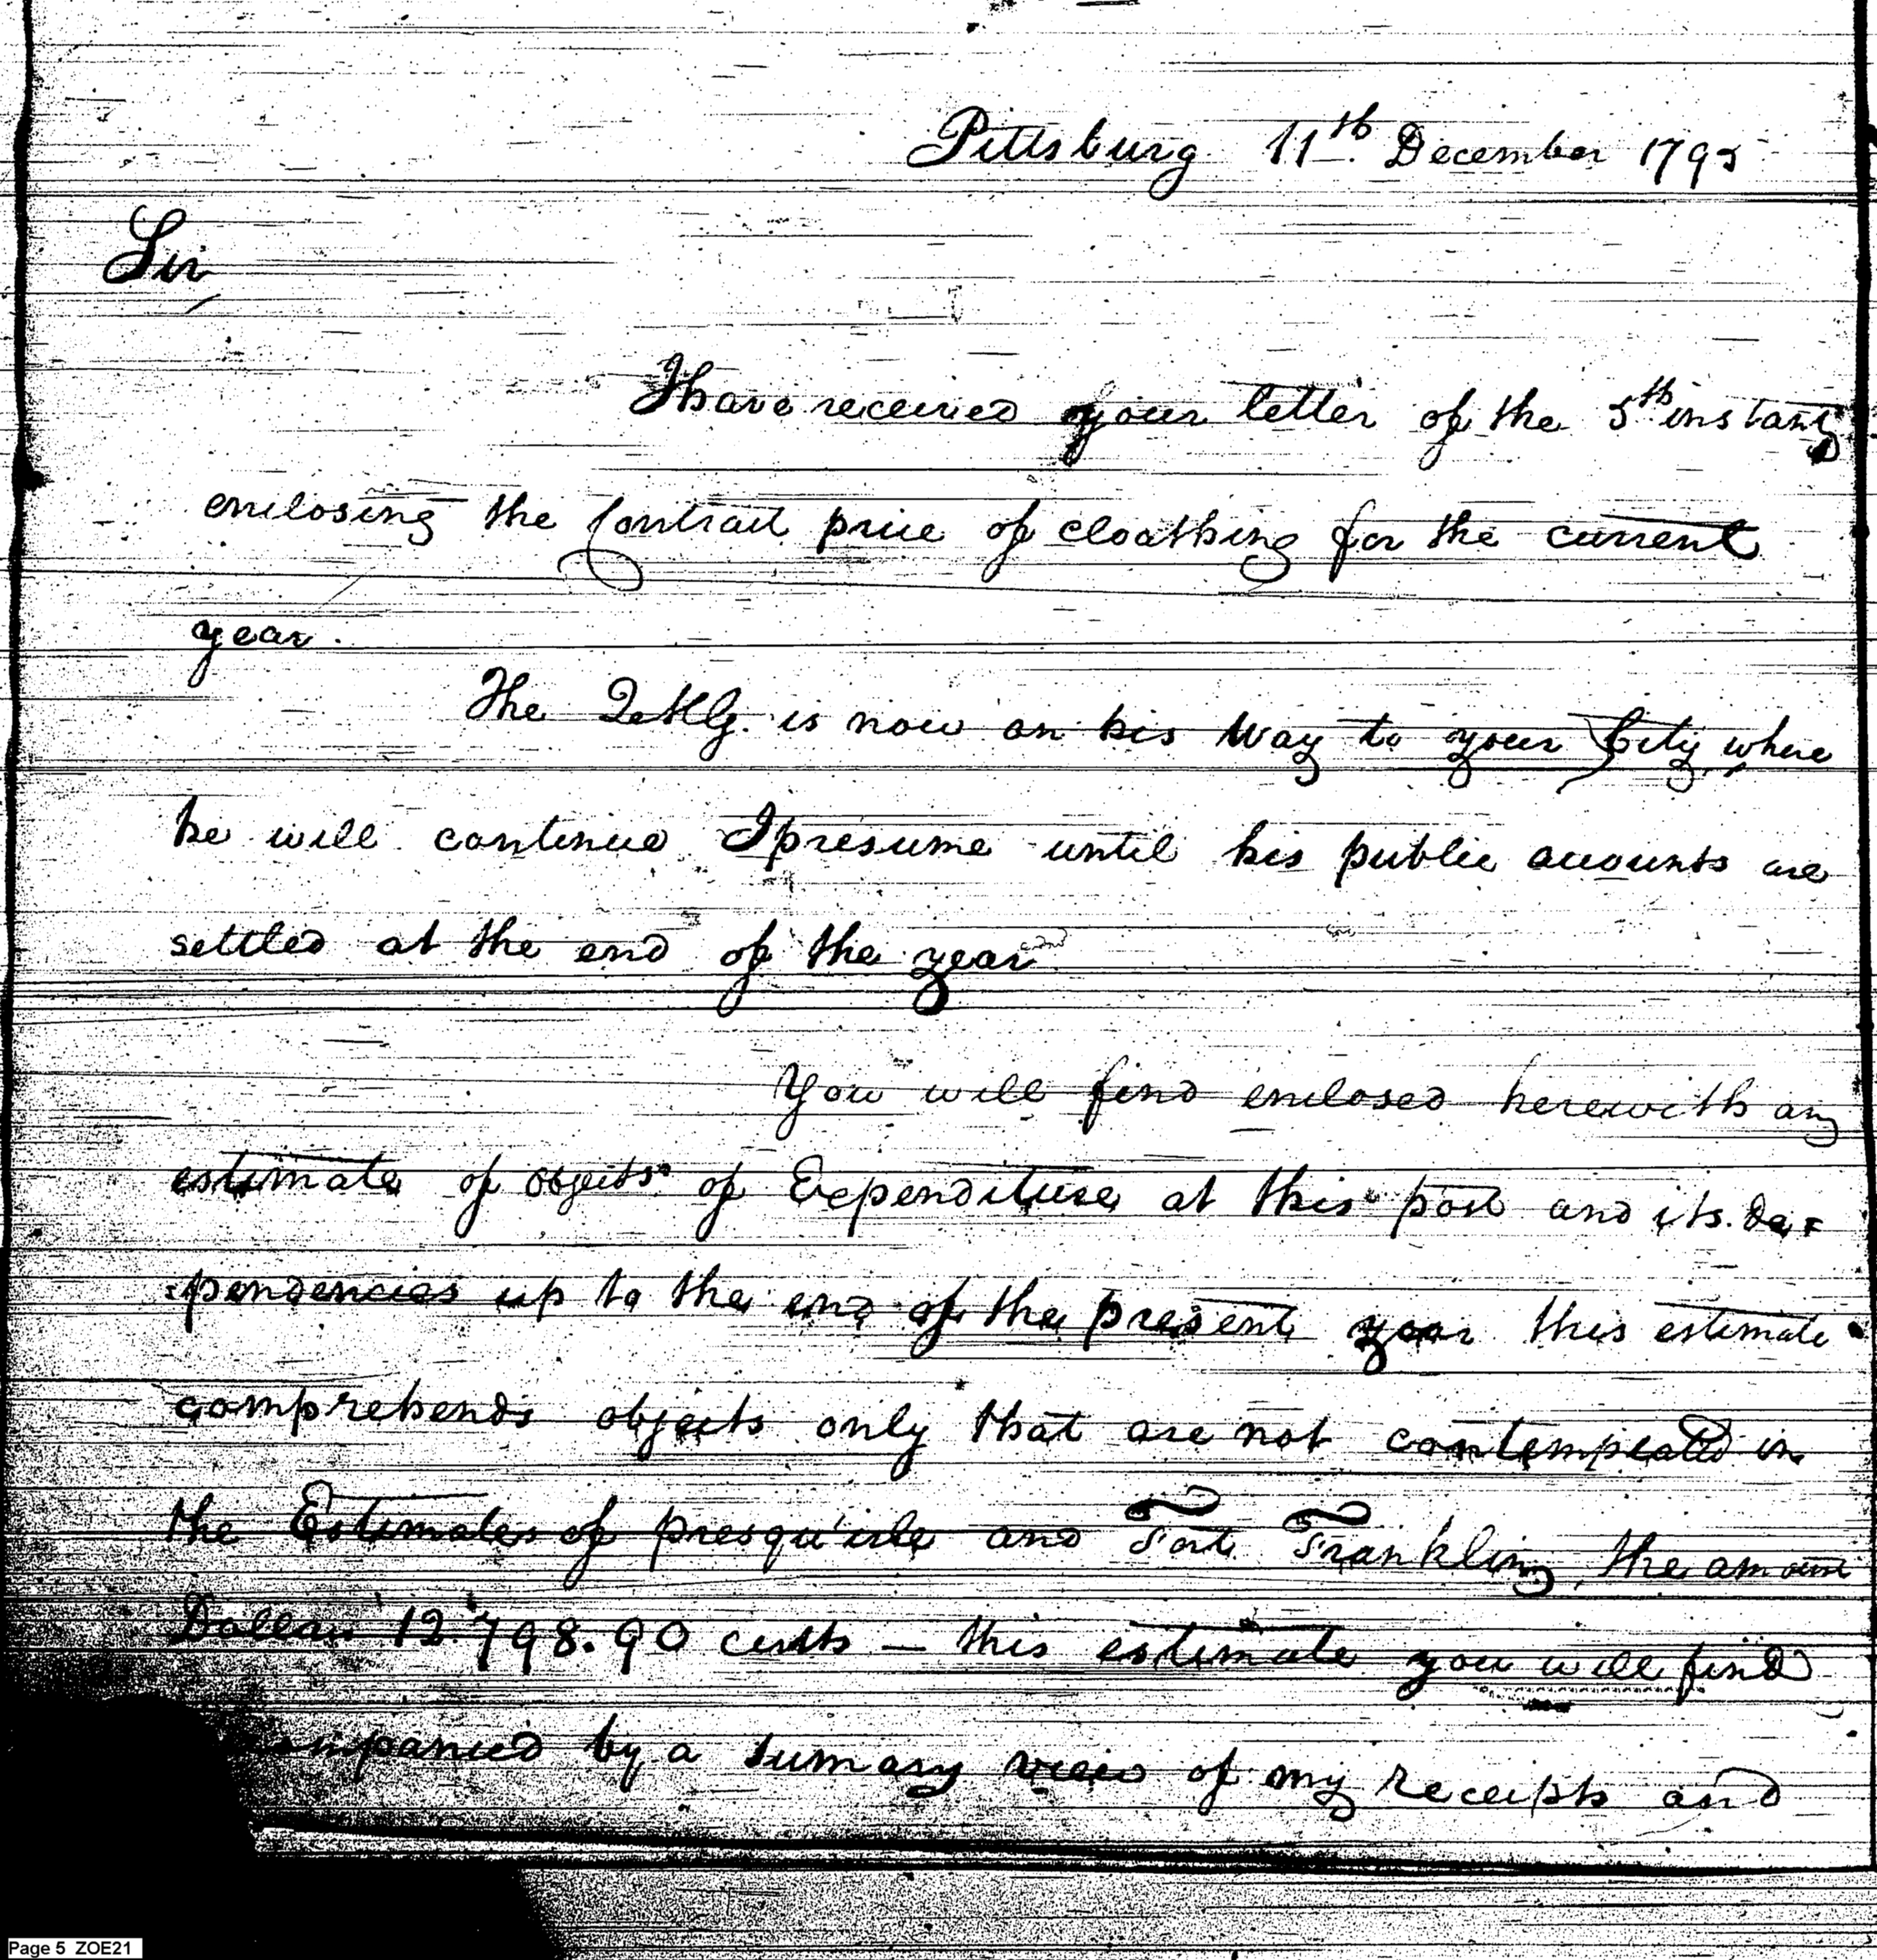 Pittsburg 11th December 1795
Sir
I have received your letter of the 5th instant
enclosing the Contract price of cloathing for the current
year.
The QMG. is now on his way to your City where
he will continue I presume until his public accounts are
settled at the end of the year
You will find enclosed herewith an
estimate of objects of Expenditure at this post and its de=
=pendencies up to the end of the present year this estimate
comprehends objects only that are not contemplated in
the Estimates of presqu'isle and Fort Franklin, the amount
Dollars 12.798.90 cents — this estimate you will find
by a sumary view of my receipts and
Page 5 ZOE21